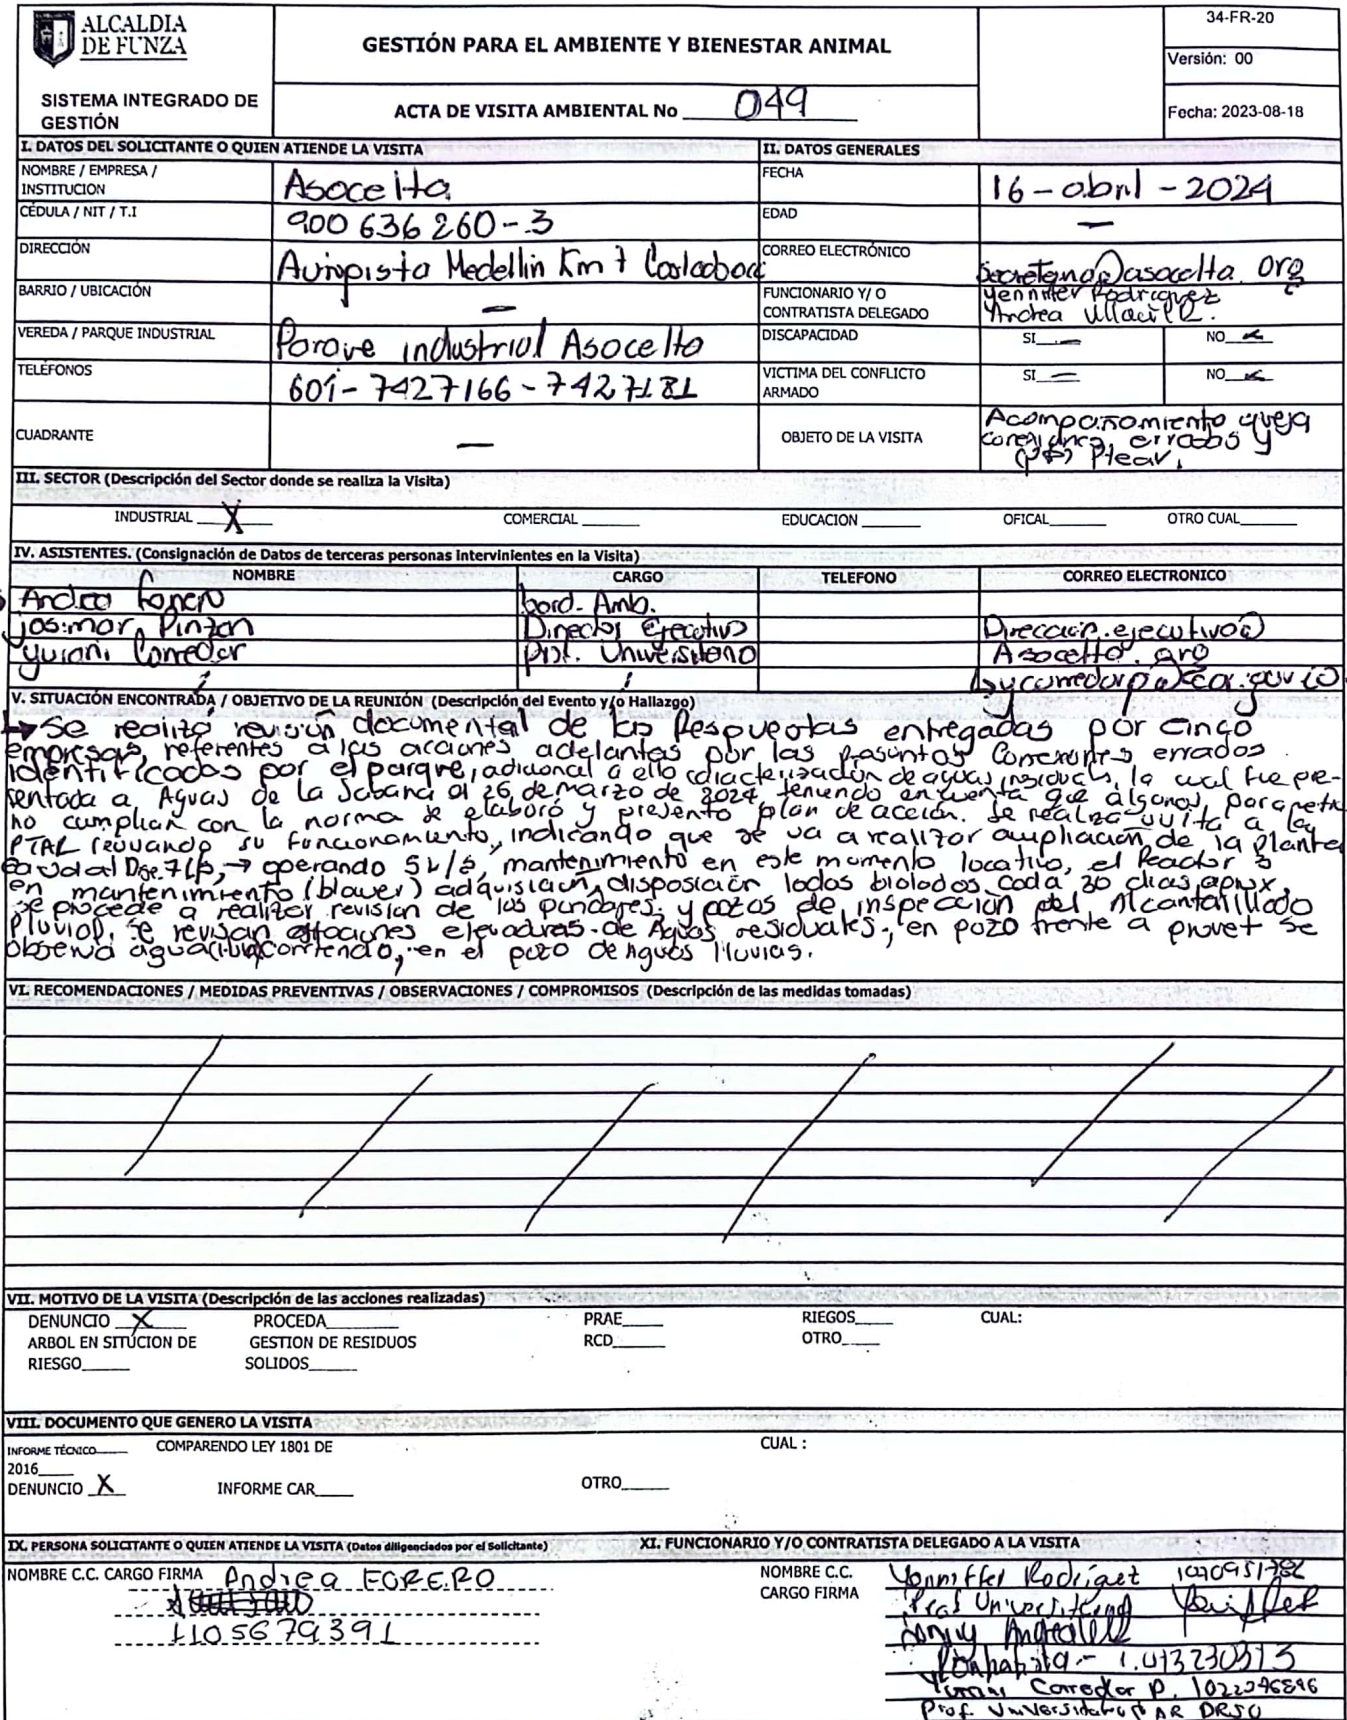 ALCALDIA
DE FUNZA
SISTEMA INTEGRADO DE
GESTIÓN
GESTIÓN PARA EL AMBIENTE Y BIENESTAR ANIMAL
ACTA DE VISITA AMBIENTAL No 049
34-FR-20
Versión: 00
Fecha: 2023-08-18
I. DATOS DEL SOLICITANTE O QUIEN ATIENDE LA VISITA
II. DATOS GENERALES
NOMBRE / EMPRESA /
INSTITUCION
Asocelta
FECHA
16 - abril - 2024
CÉDULA / NIT / T.I
900 636 260 - 3
EDAD
—
DIRECCIÓN
Autopista Medellin Km 7
CORREO ELECTRÓNICO
Secretaria@asocelta.org
BARRIO / UBICACIÓN
—
FUNCIONARIO Y/ O
CONTRATISTA DELEGADO
Yennifer Rodriguez
Andrea
VEREDA / PARQUE INDUSTRIAL
Parque industrial Asocelta
DISCAPACIDAD
SI —
NO
TELÉFONOS
601 - 7427166 - 7427181
VICTIMA DEL CONFLICTO
ARMADO
SI —
NO
CUADRANTE
—
OBJETO DE LA VISITA
Acompañamiento queja
conexiones errados y
Ptear.
III. SECTOR (Descripción del Sector donde se realiza la Visita)
INDUSTRIAL X COMERCIAL EDUCACION OFICAL OTRO CUAL
IV. ASISTENTES. (Consignación de Datos de terceras personas intervinientes en la Visita)
NOMBRE CARGO TELEFONO CORREO ELECTRONICO
Andrea Forero Coord. Amb.
Josimar Pinzon Director Ejecutivo Direccion.ejecutivo@
Yurani Corredor Prof. Universitario Asocelta.org
lycorredorp@car.gov.co
V. SITUACIÓN ENCONTRADA / OBJETIVO DE LA REUNIÓN (Descripción del Evento y/o Hallazgo)
→ Se realizo revisión documental de las Respuestas entregadas por cinco
empresas, referentes a las acciones adelantas por las presuntas Conexiones errados
identificados por el parque, adicional a ello caracterización de aguas residuales, la cual fue pre-
sentada a Aguas de la Sabana el 26 de marzo de 2024, teniendo en cuenta que algunos parametro
no cumplian con la norma se elaboró y presento plan de acción. Se realiza visita a la
PTAR revisando su funcionamiento, indicando que se va a realizar ampliación de la planta
caudal 7 L/s, → operando 5 L/s, mantenimiento en este momento locativo, el Reactor 3
en mantenimiento (blower) adquisición, disposición lodos cada 30 dias aprox,
se procede a realizar revisión de los y pozos de inspección del Alcantarillado
Pluvial, se revisan estaciones elevadoras de Aguas residuales, en pozo frente a provet se
observa agua corriendo, en el pozo de Aguas lluvias.
VI. RECOMENDACIONES / MEDIDAS PREVENTIVAS / OBSERVACIONES / COMPROMISOS (Descripción de las medidas tomadas)
VII. MOTIVO DE LA VISITA (Descripción de las acciones realizadas)
DENUNCIO X PROCEDA PRAE RIEGOS CUAL:
ARBOL EN SITUCION DE GESTION DE RESIDUOS RCD OTRO
RIESGO SOLIDOS
VIII. DOCUMENTO QUE GENERO LA VISITA
INFORME TÉCNICO COMPARENDO LEY 1801 DE CUAL :
2016
DENUNCIO X INFORME CAR OTRO
IX. PERSONA SOLICITANTE O QUIEN ATIENDE LA VISITA (Datos diligenciados por el Solicitante)
XI. FUNCIONARIO Y/O CONTRATISTA DELEGADO A LA VISITA
NOMBRE C.C. CARGO FIRMA Andrea FORERO
1105679391
NOMBRE C.C.
CARGO FIRMA
Yenniffer Rodriguez
Prof Universitario
Contratista -
Yurani Corredor P.
Prof. Universitario CAR DRSO